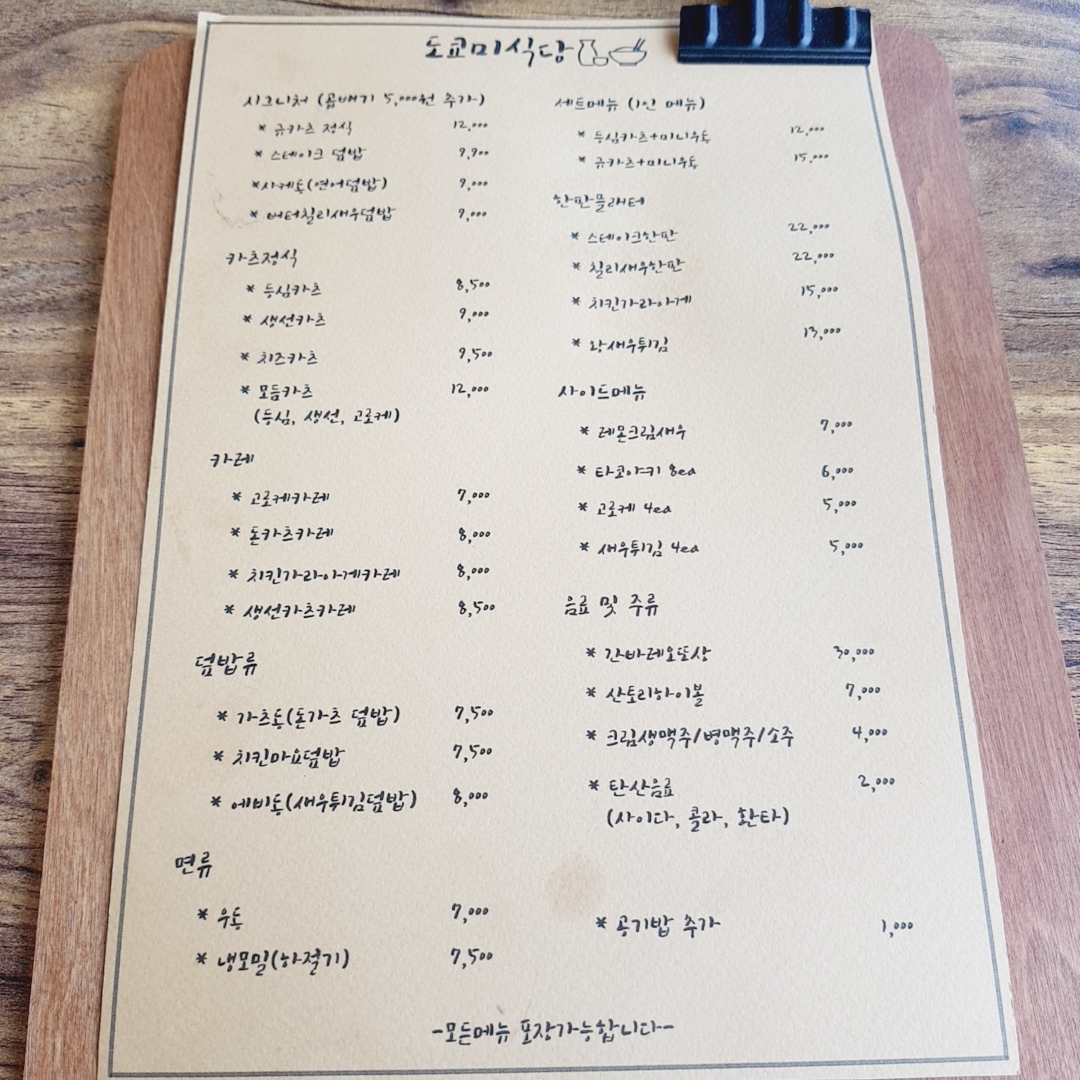 도쿄미식당
시그니처 (곱빼기 5,000원 추가)
* 규카츠 정식 12,000
* 스테이크 덮밥 9,900
* 사케동(연어덮밥) 9,000
* 버터칠리새우덮밥 9,000
카츠정식
* 등심카츠 8,500
* 생선카츠 9,000
* 치즈카츠 9,500
* 모듬카츠 12,000
(등심, 생선, 고로케)
카레
* 고로케카레 7,000
* 돈카츠카레 8,000
* 치킨가라아게카레 8,000
* 생선카츠카레 8,500
덮밥류
* 가츠동(돈가츠 덮밥) 7,500
* 치킨마요덮밥 7,500
* 에비동(새우튀김덮밥) 8,000
면류
* 우동 7,000
* 냉모밀(하절기) 7,500
세트메뉴 (1인 메뉴)
* 등심카츠+미니우동 12,000
* 규카츠+미니우동 15,000
한판플래터
* 스테이크한판 22,000
* 칠리새우한판 22,000
* 치킨가라아게 15,000
* 왕새우튀김 13,000
사이드메뉴
* 레몬크림새우 7,000
* 타코야키 8ea 6,000
* 고로케 4ea 5,000
* 새우튀김 4ea 5,000
음료 및 주류
* 간바레오또상 30,000
* 산토리하이볼 7,000
* 크림생맥주/병맥주/소주 4,000
* 탄산음료 2,000
(사이다, 콜라, 환타)
* 공기밥 추가 1,000
-모든메뉴 포장가능합니다-